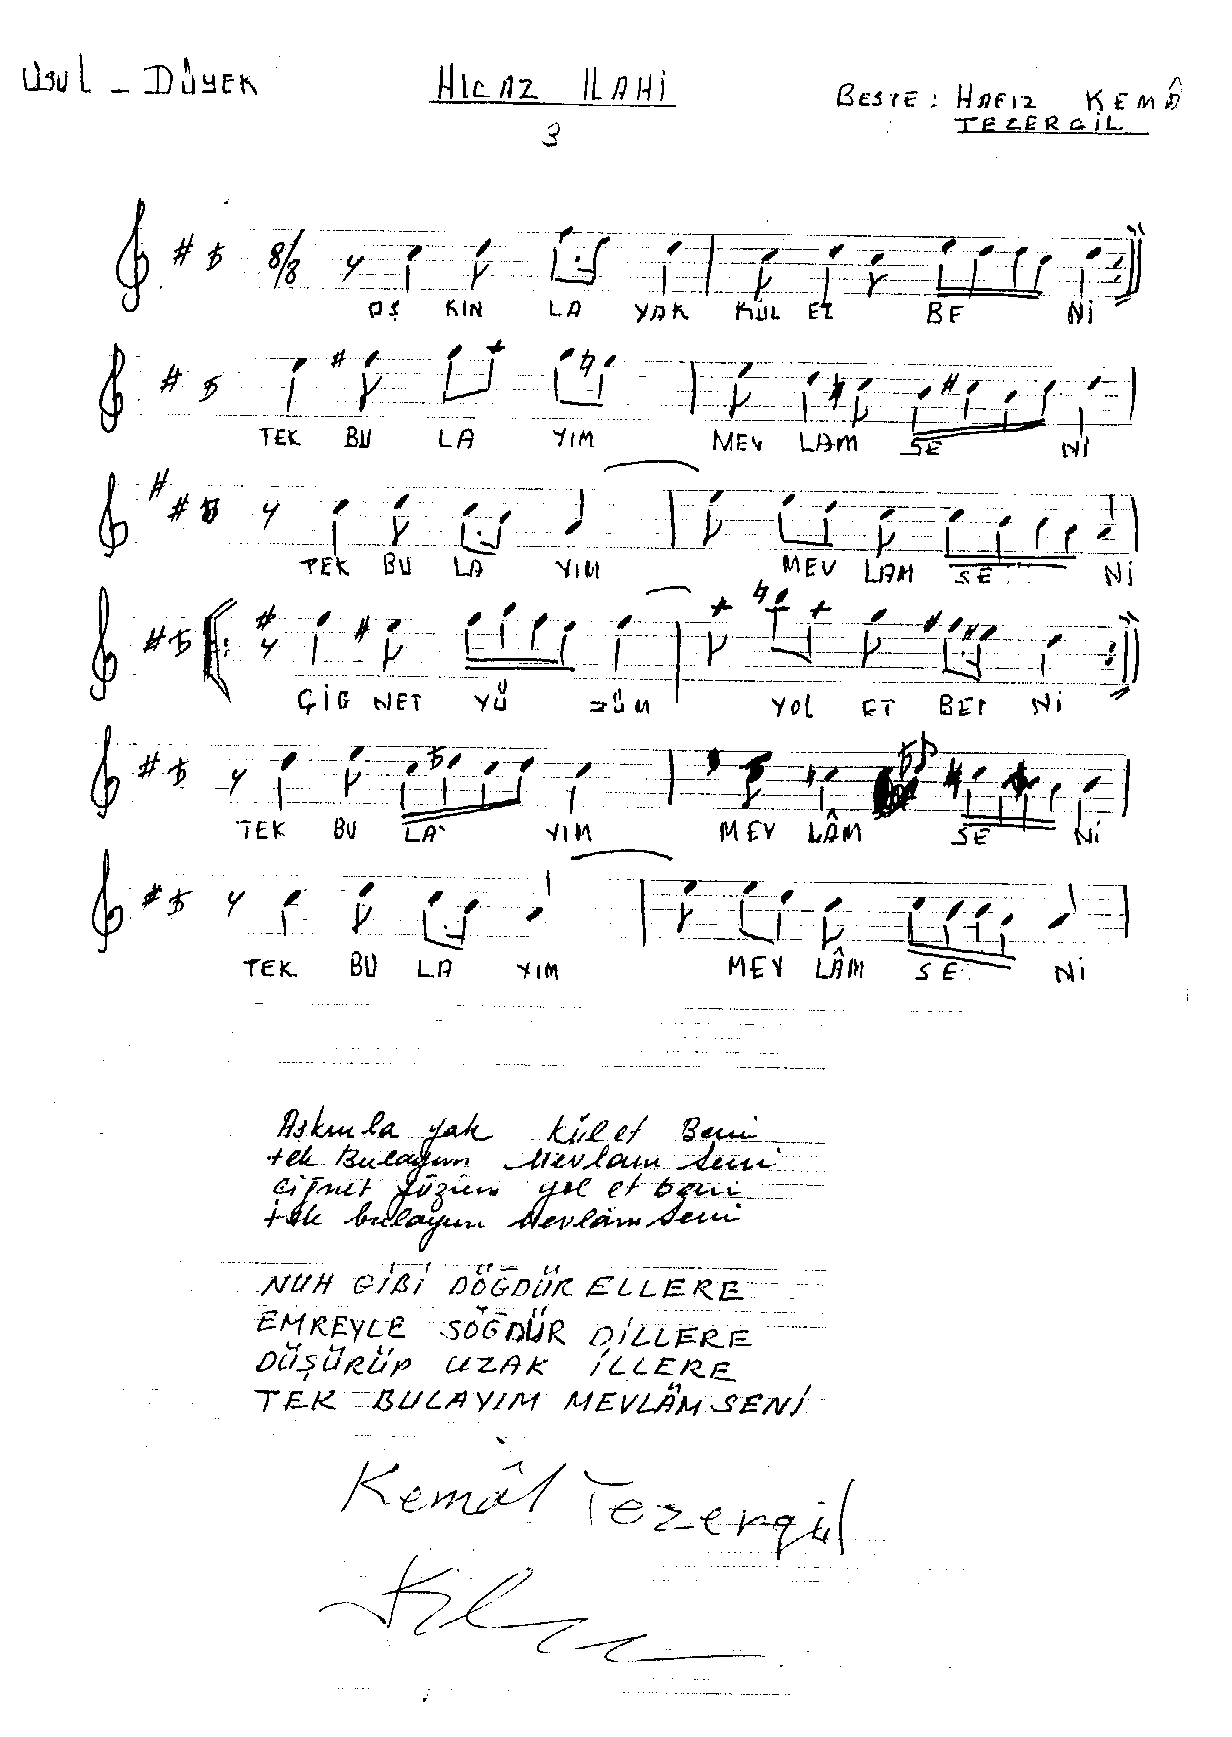 USUL - DÜYEK
HICAZ ILAHİ
BESTE: HAFIZ KEMÂ
TEZERGİL
3
8/8
AŞ KIN LA YAK KÜL ET BE Nİ
TEK BU LA YIM MEV LAM SE Nİ
TEK BU LA YIM MEV LAM SE Nİ
ÇİG NET YÜ ZÜM YOL ET BEN Nİ
TEK BU LA YIM MEV LÂM SE Nİ
TEK BU LA YIM MEV LÂM SE Nİ
Aşkınla yak Kül et Beni
tek Bulayım Mevlam Seni
Çiğnet yüzüm yol et beni
tek bulayım Mevlâm Seni
NUH GİBİ DÖĞDÜR ELLERE
EMREYLE SÖĞDÜR DİLLERE
DÜŞÜRÜP UZAK İLLERE
TEK BULAYIM MEVLÂM SENİ
Kemâl Tezergil